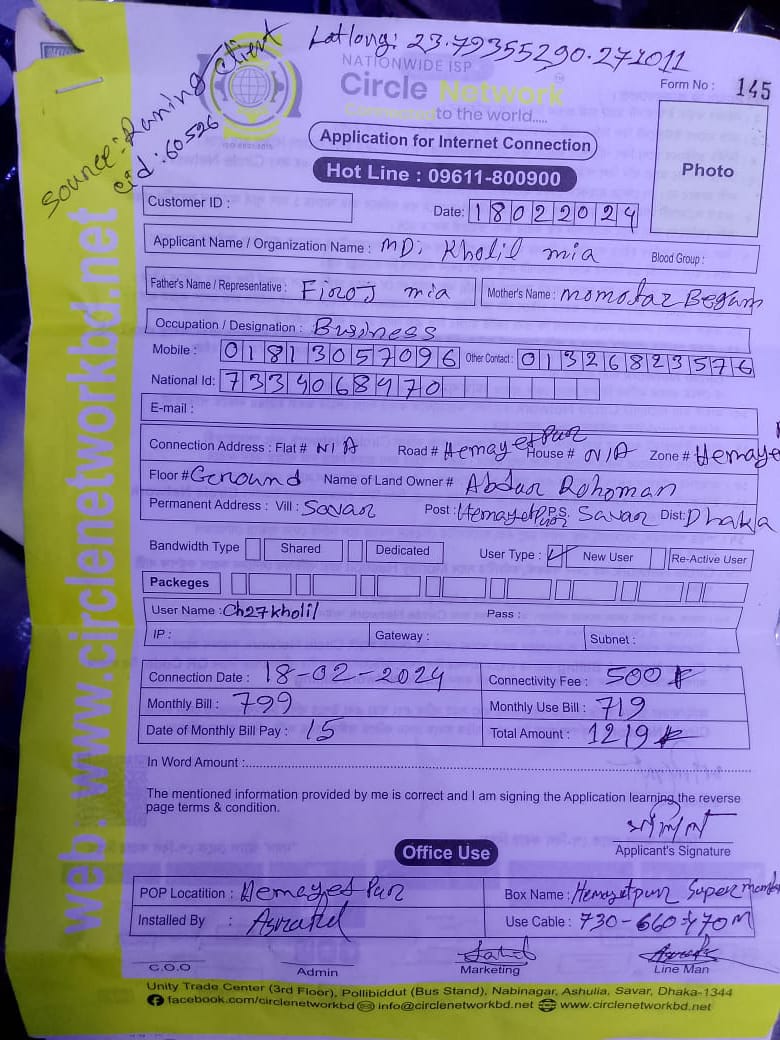 Source: Raning Client
cid: 60526
Latlong: 23.79355290.271011
NATIONWIDE ISP
Circle Network
Connected to the world.....
ISO 9001:2015
Form No : 145
Application for Internet Connection
Hot Line : 09611-800900
Photo
Customer ID :
Date: 18022024
Applicant Name / Organization Name : MD: Kholil mia Blood Group :
Father's Name / Representative : Firoj mia Mother's Name : momotaz Begum
Occupation / Designation : Business
Mobile : 01813057096 Other Contact : 01326823576
National Id: 7334068470
E-mail :
Connection Address : Flat # N/A Road # HemayetPur House # N/A Zone # Hemaye
Floor # Ground Name of Land Owner # Abdur Rohoman
Permanent Address : Vill : Savar Post : HemayetPur P.S. Savar Dist: Dhaka
Bandwidth Type Shared Dedicated User Type : New User Re-Active User
Packeges
User Name : Ch27kholil Pass :
IP : Gateway : Subnet :
Connection Date : 18-02-2024 Connectivity Fee : 500
Monthly Bill : 799 Monthly Use Bill : 719
Date of Monthly Bill Pay : 15 Total Amount : 1219
In Word Amount :
The mentioned information provided by me is correct and I am signing the Application learning the reverse
page terms & condition.
Applicant's Signature
Office Use
POP Locatition : Hemayet Pur Box Name : Hemayetpur Super
Installed By : Use Cable : 730-660=70M
C.O.O Admin Marketing Line Man
Unity Trade Center (3rd Floor), Pollibiddut (Bus Stand), Nabinagar, Ashulia, Savar, Dhaka-1344
facebook.com/circlenetworkbd info@circlenetworkbd.net www.circlenetworkbd.net
web: www.circlenetworkbd.net